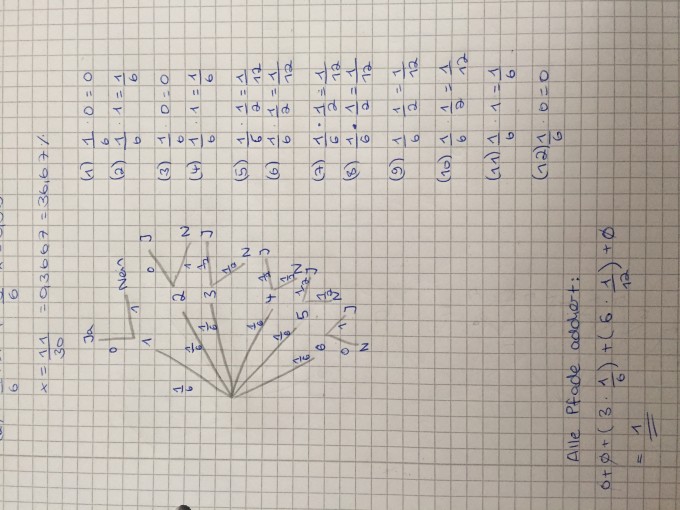 x = 11/30 = 0,3667 = 36,67%
Ja
Nein
0
1
1/6
1
1/6
2
0
J
1
N
1/6
3
1/2
J
1/2
N
1/6
4
1/2
J
1/2
N
1/6
5
1/2
J
1/2
N
1/6
6
1
J
0
N
(1) 1/6 · 0 = 0
(2) 1/6 · 1 = 1/6
(3) 1/6 · 0 = 0
(4) 1/6 · 1 = 1/6
(5) 1/6 · 1/2 = 1/12
(6) 1/6 · 1/2 = 1/12
(7) 1/6 · 1/2 = 1/12
(8) 1/6 · 1/2 = 1/12
(9) 1/6 · 1/2 = 1/12
(10) 1/6 · 1/2 = 1/12
(11) 1/6 · 1 = 1/6
(12) 1/6 · 0 = 0
Alle Pfade addiert:
0+0+(3 · 1/6)+(6 · 1/12)+0
= 1